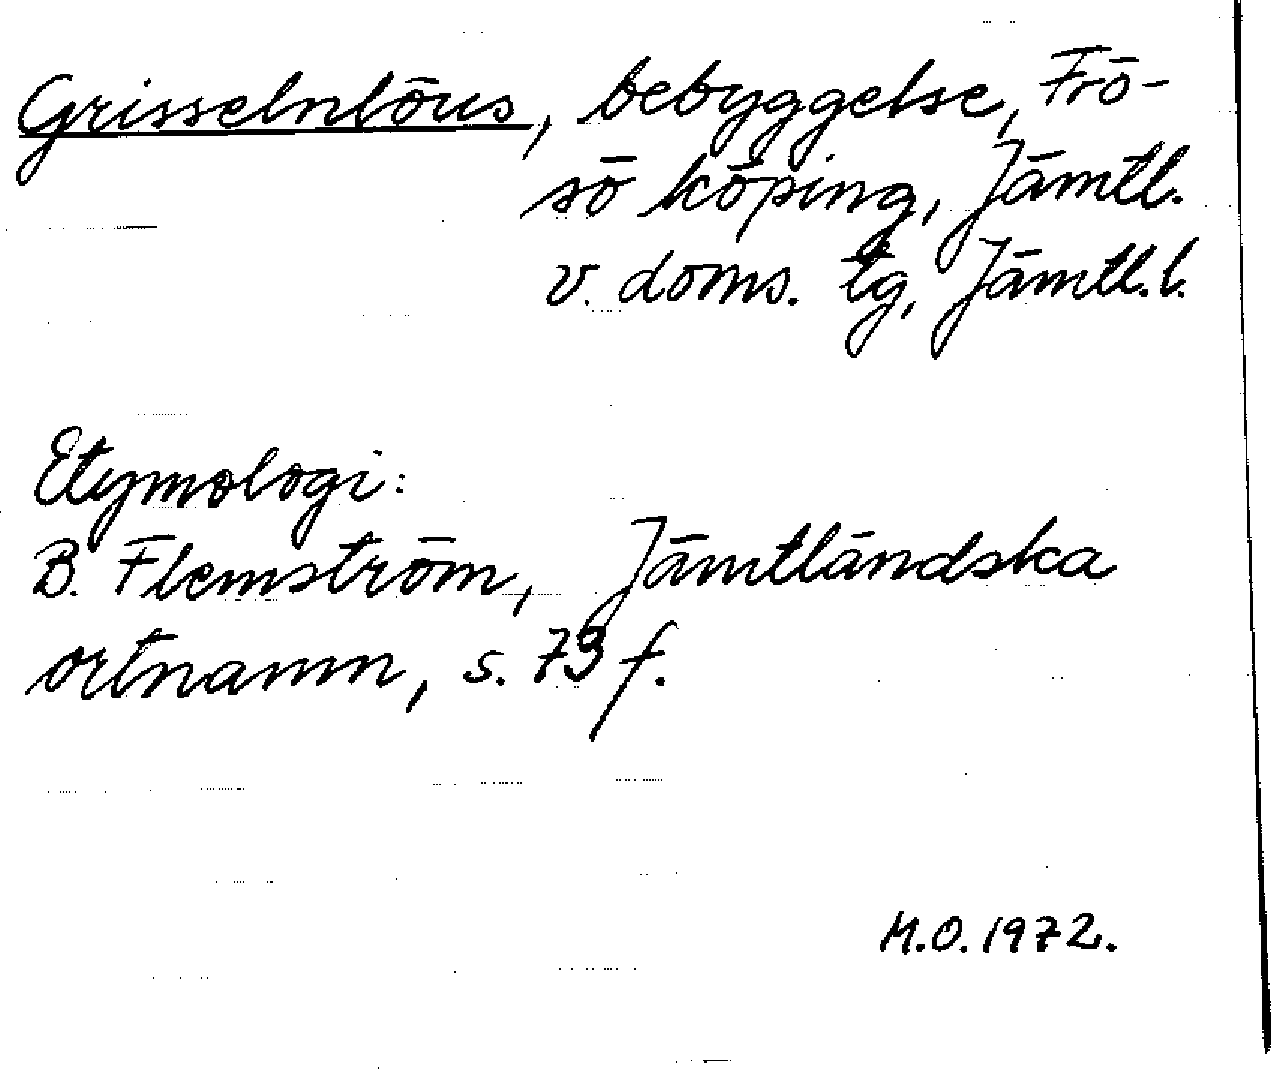 Grisselnlöus, bebyggelse, Frö-
sö köping, Jämtl.
v. doms. tg, Jämtl. l.
Etymologi:
B. Flemström, Jämtländska
ortnamn, s. 73 f.
M.O. 1972.